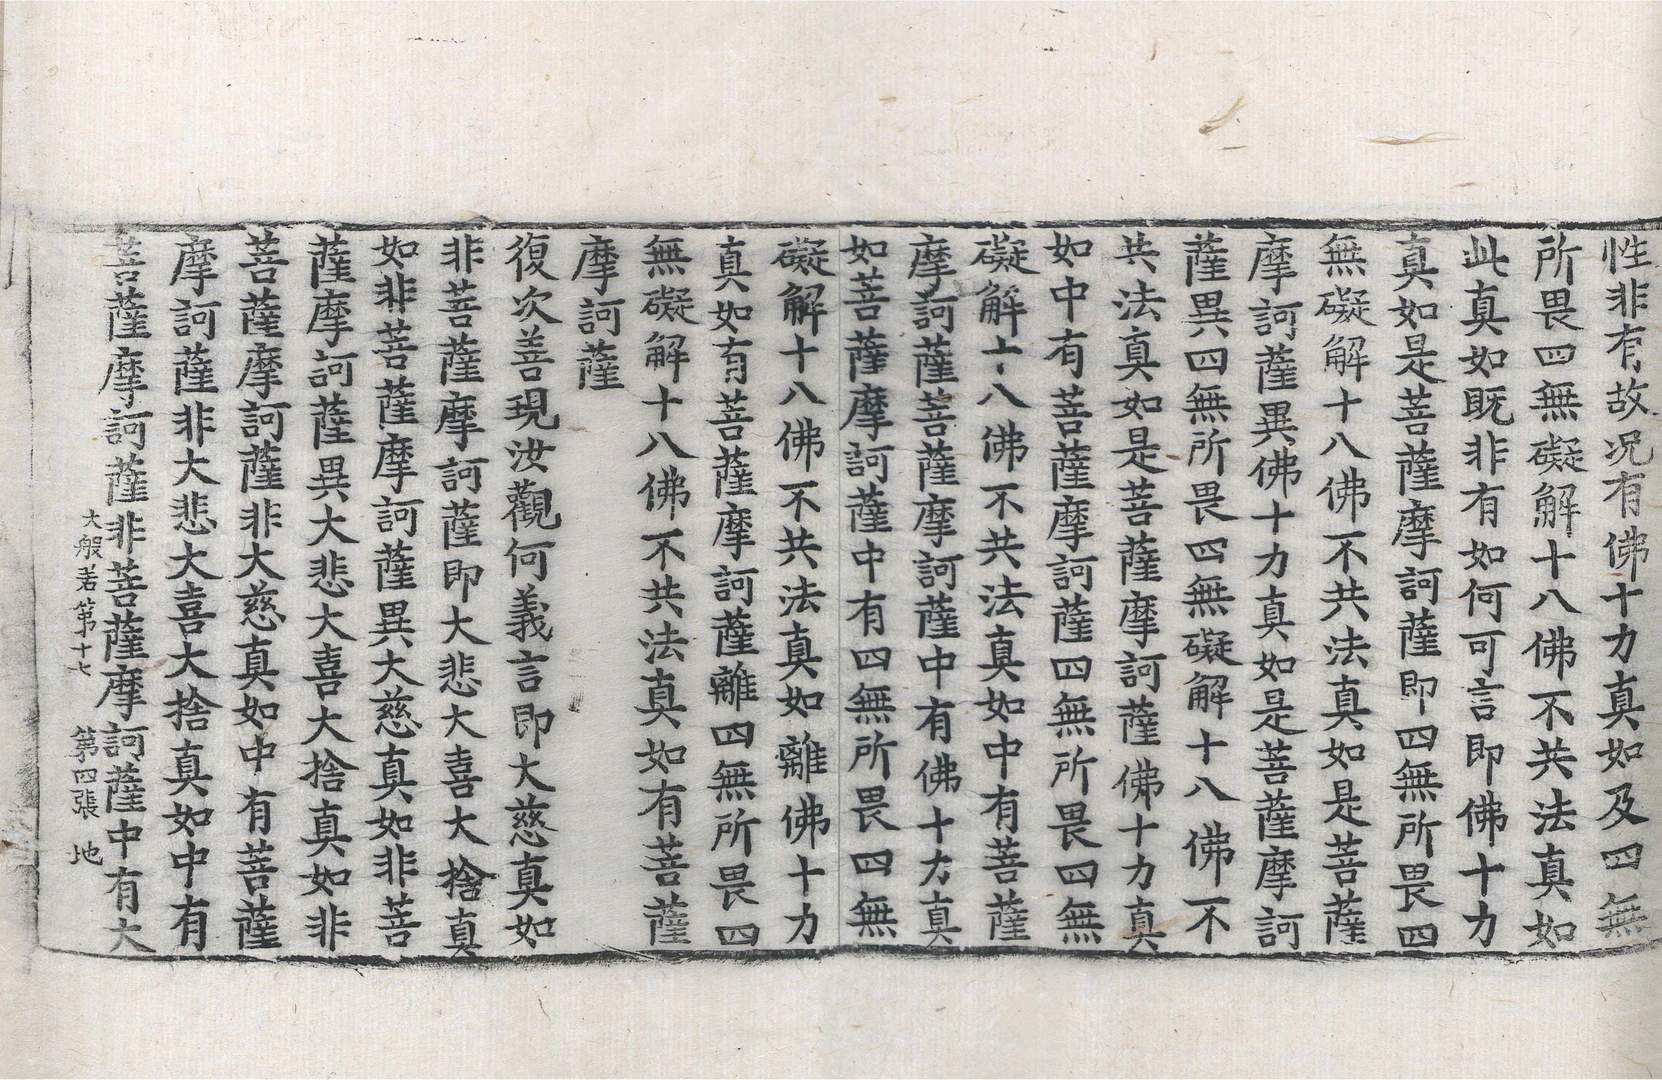 性非有故况有佛十力真如及四無
所畏四無礙解十八佛不共法真如
此真如既非有如何可言即佛十力
真如是菩薩摩訶薩即四無所畏四
無礙解十八佛不共法真如是菩薩
摩訶薩異佛十力真如是菩薩摩訶
薩異四無所畏四無礙解十八佛不
共法真如是菩薩摩訶薩佛十力真
如中有菩薩摩訶薩四無所畏四無
礙解十八佛不共法真如中有菩薩
摩訶薩菩薩摩訶薩中有佛十力真
如菩薩摩訶薩中有四無所畏四無
礙解十八佛不共法真如離佛十力
真如有菩薩摩訶薩離四無所畏四
無礙解十八佛不共法真如有菩薩
摩訶薩
復次善現汝觀何義言即大慈真如
非菩薩摩訶薩即大悲大喜大捨真
如非菩薩摩訶薩異大慈真如非菩
薩摩訶薩異大悲大喜大捨真如非
菩薩摩訶薩非大慈真如中有菩薩
摩訶薩非大悲大喜大捨真如中有
菩薩摩訶薩非菩薩摩訶薩中有大
大般若第十七 第四張 地